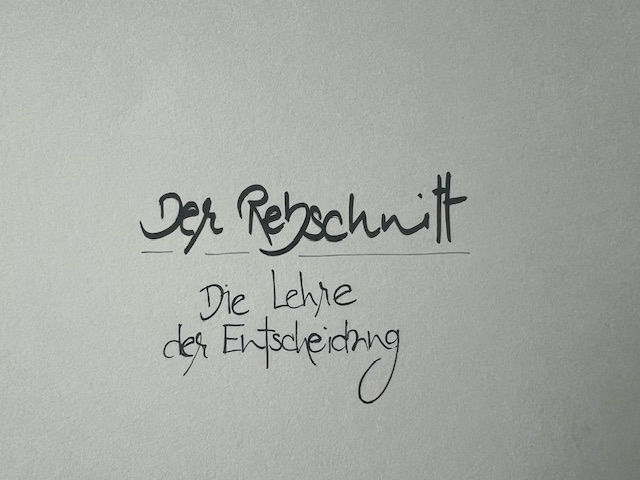 Der Rebschnitt
Die Lehre
der Entscheidung